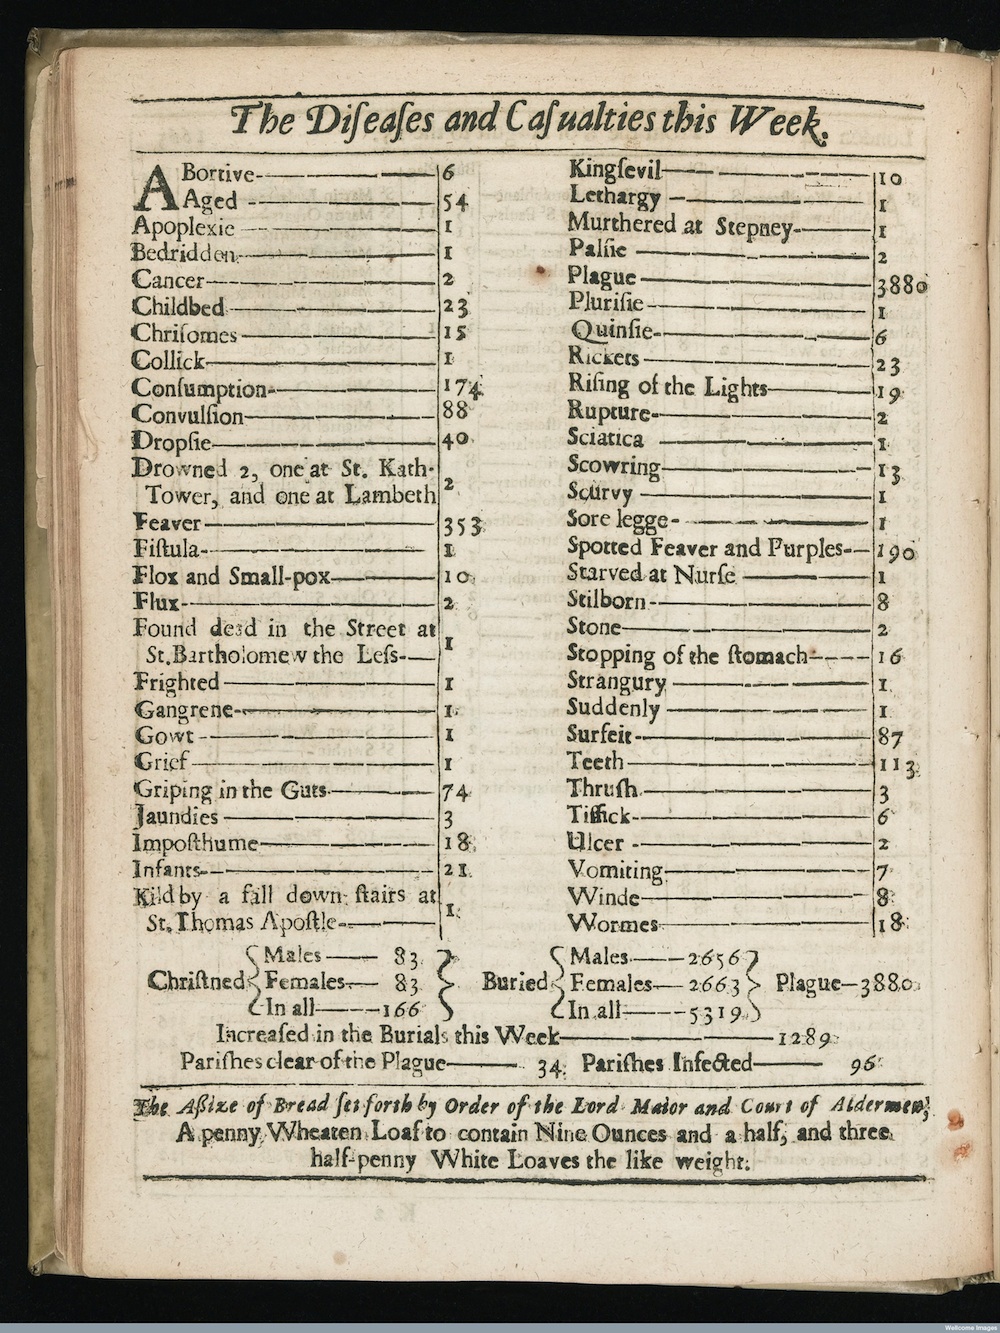 The Diſeaſes and Caſualties this Week.
ABortive 6
Aged 54
Apoplexie 1
Bedridden 1
Cancer 2
Childbed 23
Chriſomes 15
Collick 1
Conſumption 174
Convulſion 88
Dropſie 40
Drowned 2, one at St. Kath-
Tower, and one at Lambeth 2
Feaver 353
Fiſtula 1
Flox and Small-pox 10
Flux 2
Found dead in the Street at
St. Bartholomew the Leſs 1
Frighted 1
Gangrene 1
Gowt 1
Grief 1
Griping in the Guts 74
Jaundies 3
Impoſthume 18
Infants 21
Kild by a fall down ſtairs at
St. Thomas Apoſtle 1
Kingſevil 10
Lethargy 1
Murthered at Stepney 1
Palſie 2
Plague 3880
Pluriſie 1
Quinſie 6
Rickets 23
Riſing of the Lights 19
Rupture 2
Sciatica 1
Scowring 13
Scurvy 1
Sore legge 1
Spotted Feaver and Purples 190
Starved at Nurſe 1
Stilborn 8
Stone 2
Stopping of the ſtomach 16
Strangury 1
Suddenly 1
Surfeit 87
Teeth 113
Thruſh 3
Tiſſick 6
Ulcer 2
Vomiting 7
Winde 8
Wormes 18
Chriſtned { Males 83 Females 83 In all 166 }
Buried { Males 2656 Females 2663 In all 5319 } Plague 3880
Increaſed in the Burials this Week 1289
Pariſhes clear of the Plague 34 Pariſhes Infected 96
The Aſſize of Bread ſet forth by Order of the Lord Maior and Court of Aldermen,
A penny Wheaten Loaf to contain Nine Ounces and a half, and three
half-penny White Loaves the like weight.
Wellcome Images